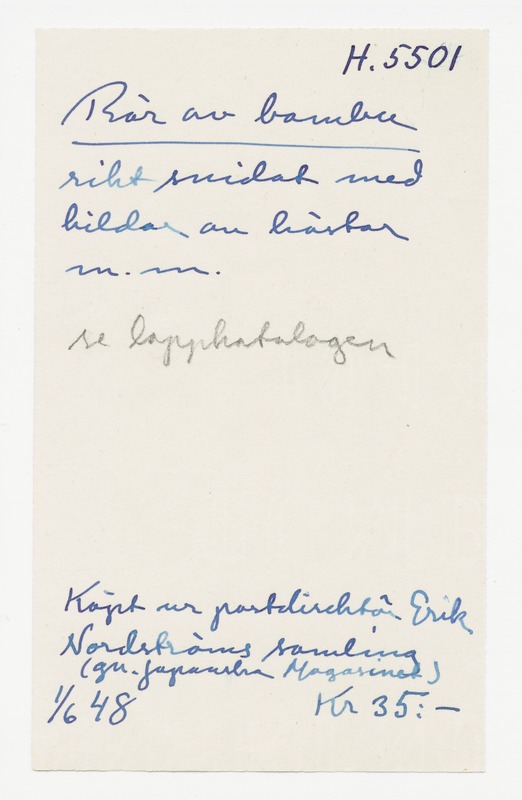 H.5501
Rör av bambu
rikt snidat med
bilder av hästar
m.m.
se lappkatalogen
Köpt ur postdirektör Erik
Nordströms samling
(gn. Japanska Magasinet)
1/6 48 Kr 35:-